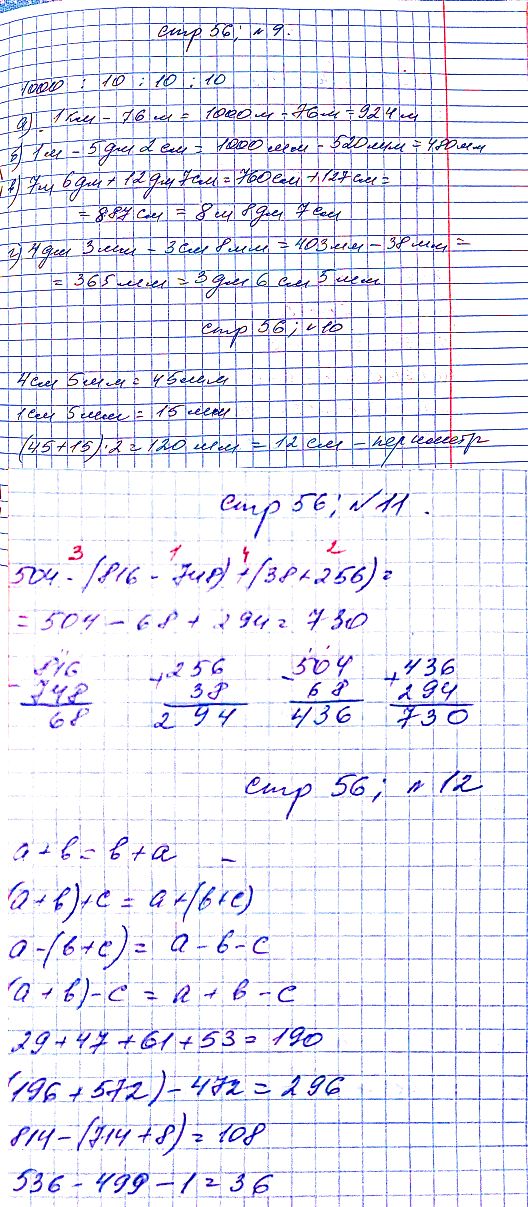 стр 56; №9.
1000 : 10 : 10 : 10
а) 1км - 76 м = 1000м - 76м = 924 м
б) 1м - 5дм 2см = 1000мм - 520мм = 480мм
в) 7м 6дм + 12дм 7см = 760см + 127см =
= 887см = 8м 8дм 7см
г) 4дм 3мм - 3см 8мм = 403мм - 38мм =
= 365мм = 3дм 6см 5мм
стр 56; №10
4см 5мм = 45мм
1см 5мм = 15мм
(45+15)·2 = 120мм = 12см - периметр
стр 56; №11.
3 1 4 2
504 - (816 - 748) + (38+256) =
= 504 - 68 + 294 = 730
816 256 504 436
- 748 + 38 - 68 + 294
68 294 436 730
стр 56; №12
а + в = в + а
(а + в) + с = а + (в + с)
а - (в + с) = а - в - с
(а + в) - с = а + в - с
29 + 47 + 61 + 53 = 190
(196 + 572) - 472 = 296
814 - (714 + 8) = 108
536 - 499 - 1 = 36